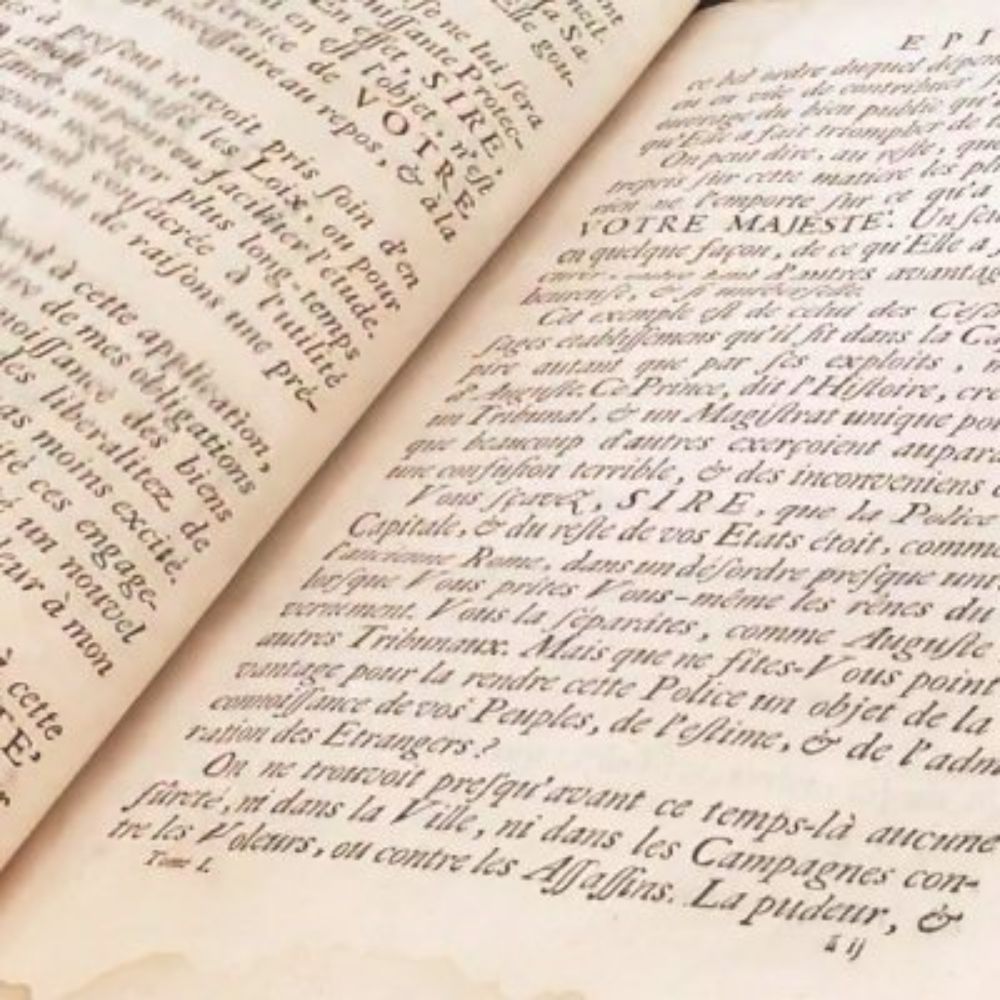 ent
neil.
sa Sa
Elle gou-
se ne lui sera
uissante Protec-
En effet, SIRE,
en est l'objet, n'est
ervice de VOTRE
necessaire au repos, & à la
à present n'avoit pris soin d'en
ramassé les Loix, ou pour
ou pour en faciliter l'étude.
negliger plus long-temps
consacrée à l'utilité
tant de raisons une pré-
à cette application,
de mes obligations
noissance des biens
les liberalitez de
as moins excité.
té ces engage-
é un nouvel
leur à mon
à cette
TE,
EPI
ce bel ordre duquel dépen
eu en vûe de contribuer
ouvrage du bien public qu'
qu'Elle a fait triompher de
On peut dire, au reste, que
trepris sur cette matiere les pl
rien ne l'emporte sur ce qu'a
VOTRE MAJESTE'. Un seu
en quelque façon, de ce qu'Elle a f
d'autres avantag
heureuse, & si universelle.
Cet exemple est de celui des Cesa
sages établissemens qu'il fit dans la Ca
pire autant que par ses exploits,
d'Auguste. Ce Prince, dit l'Histoire, cre
un Tribunal, & un Magistrat unique pou
que beaucoup d'autres exerçoient aupara
une confusion terrible, & des inconveniens
Vous sçavez, SIRE, que la Police
Capitale, & du reste de vos Etats étoit, comme
l'ancienne Rome, dans un désordre presque uni
lorsque Vous prîtes Vous-même les rênes du
vernement. Vous la séparâtes, comme Auguste
autres Tribunaux. Mais que ne fîtes-Vous point
vantage pour la rendre cette Police un objet de la
connoissance de vos Peuples, de l'estime, & de l'admi
ration des Etrangers?
On ne trouvoit presqu'avant ce temps-là aucune
sûreté, ni dans la Ville, ni dans les Campagnes con-
tre les Voleurs, ou contre les Assassins. La pudeur, &
Tome I.
ã ij